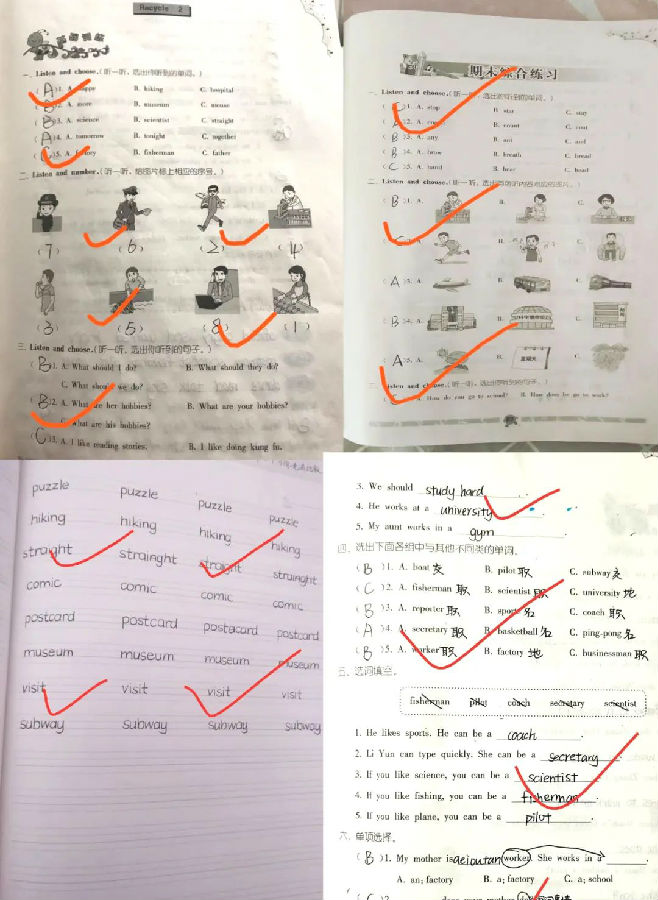 Recycle 2
一、Listen and choose.(听一听，选出你听到的单词。)
(A)1. A. happy B. hiking C. hospital
(B)2. A. more B. museum C. mouse
(B)3. A. science B. scientist C. straight
(A)4. A. tomorrow B. tonight C. together
( )5. A. factory B. fisherman C. father
二、Listen and number.(听一听，给图片标上相应的序号。)
(7) (6) (2) (4)
(3) (5) (8) (1)
三、Listen and choose.(听一听，选出你听到的句子。)
(B)1. A. What should I do? B. What should they do?
C. What should we do?
(B)2. A. What are her hobbies? B. What are your hobbies?
C. What are his hobbies?
(C)3. A. I like reading stories. B. I like doing kung fu.
期末综合练习
一、Listen and choose.(听一听，选出你听到的单词。)
(C)1. A. stop B. star C. stay
(A)2. A. B. count C. cont
(B)3. A. any B. ant C. and
(B)4. A. B. breath C. bread
(C)5. A. hand B. hear C. head
二、Listen and choose.
(B)1. A. B. C.
(C)2. A. B. C.
(A)3. A. B. C.
(B)4. A. B. C.
(A)5. A. B. 星期天 C.
三、Listen and choose.(听一听，选出你听到的句子。)
A. How do you go to school? B. How does he go to work?
puzzle puzzle puzzle puzzle
hiking hiking hiking hiking
straight strainght straight strainght
comic comic comic comic
postcard postcard postacard postcard
museum museum museum museum
visit visit visit visit
subway subway subway subway
3. We should study hard.
4. He works at a university.
5. My aunt works in a gym.
四、选出下面各组中与其他不同类的单词。
(B)1. A. boat 交 B. pilot 职 C. subway 交
(C)2. A. fisherman 职 B. scientist 职 C. university 地
(B)3. A. reporter 职 B. sport 名 C. coach 职
(A)4. A. secretary 职 B. basketball 名 C. ping-pong 名
(B)5. A. worker 职 B. factory 地 C. businessman 职
五、选词填空。
fisherman pilot coach secretary scientist
1. He likes sports. He can be a coach.
2. Li Yun can type quickly. She can be a secretary.
3. If you like science, you can be a scientist.
4. If you like fishing, you can be a fisherman.
5. If you like plane, you can be a pilot.
六、单项选择。
(B)1. My mother is a worker. She works in a
A. an; factory B. a; factory C. a; school